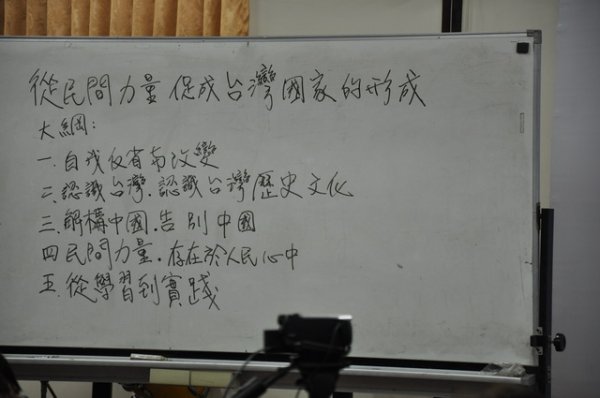 從民間力量促成台灣國家的形成
大綱:
一.自我反省与改變
二.認識台灣.認識台灣歷史文化
三.解構中國.告別中國
四民間力量.存在於人民心中
五.從學習到實踐